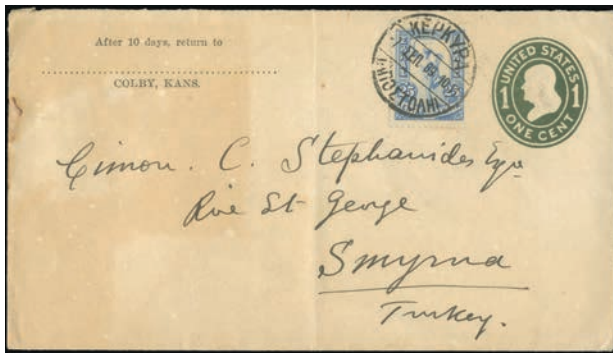 After 10 days, return to
COLBY, KANS.
ΚΕΡΚΥΡΑ
UNITED STATES
1 1
ONE CENT
Cimon. C. Stephanides Esqr
Rue St George
Smyrna
Turkey.